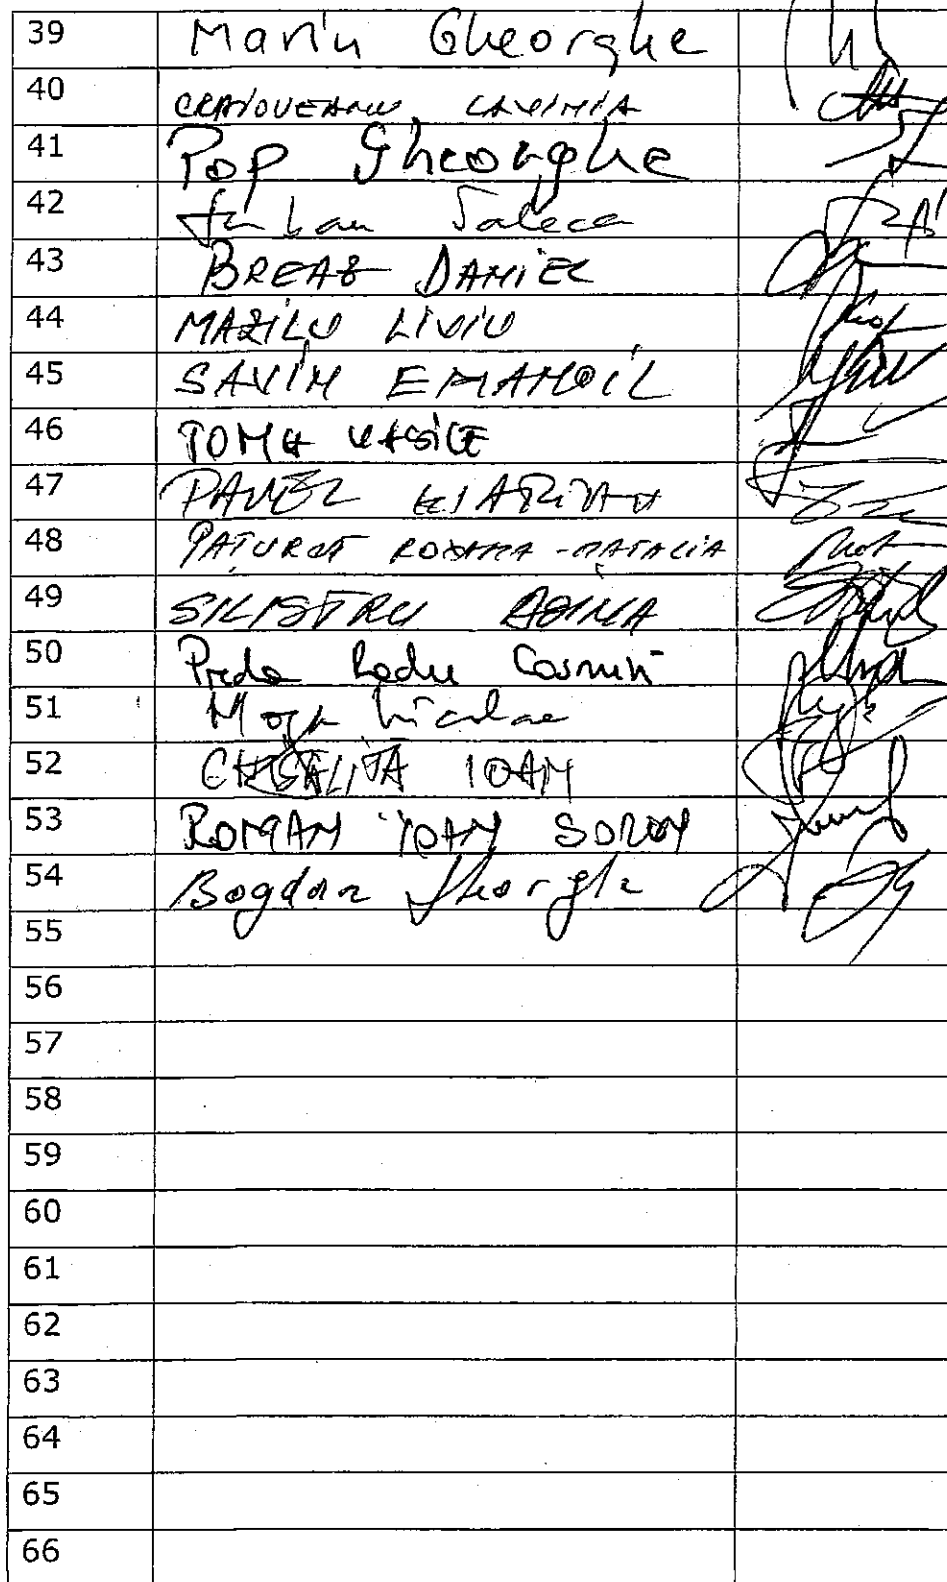 39 Marin Gheorghe
40 CRAIOVEANU LAVINIA
41 Pop Gheorghe
42
43 BREAZ DANIEL
44 MAZILU LIVIU
45 SAVIN EMANOIL
46 TOMA VASILE
47 PAVEL
48 PATURCA ROXANA-NATALIA
49 SILISTRU DOINA
50 Preda Radu Cosmin
51 Moga Nicolae
52 CHISALITA IOAN
53 ROMAN IOAN SORIN
54 Bogdan Gheorghe
55
56
57
58
59
60
61
62
63
64
65
66